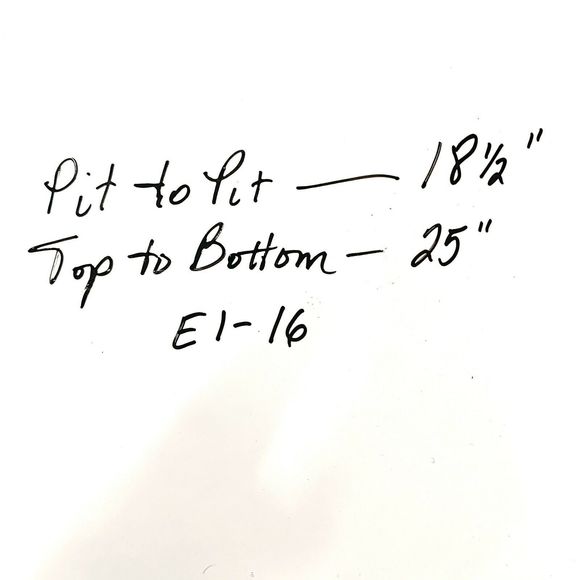 Pit to Pit — 18 1/2"
Top to Bottom — 25"
E1-16